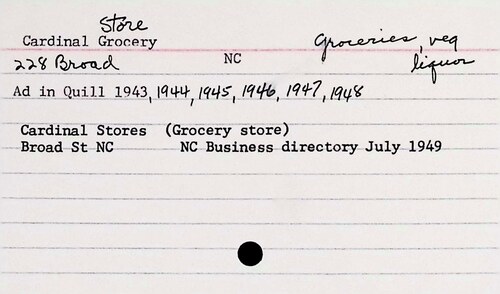 Store
Cardinal Grocery
Groceries, veg
228 Broad NC liquor
Ad in Quill 1943, 1944, 1945, 1946, 1947, 1948
Cardinal Stores (Grocery store)
Broad St NC NC Business directory July 1949